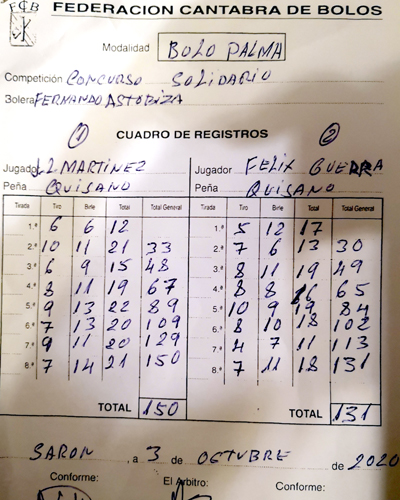 FCB FEDERACION CANTABRA DE BOLOS
Modalidad BOLO PALMA
Competición CONCURSO SOLIDARIO
Bolera FERNANDO ASTOBIZA
1 CUADRO DE REGISTROS 2
Jugador J.L MARTINEZ Jugador FELIX GUERRA
Peña QUISANO Peña QUISANO
Tirada Tiro Birle Total Total General Tirada Tiro Birle Total Total General
1.ª 6 6 12 1.ª 5 12 17
2.ª 10 11 21 33 2.ª 7 6 13 30
3.ª 6 9 15 48 3.ª 8 11 19 49
4.ª 8 11 19 67 4.ª 8 8 16 65
5.ª 9 13 22 89 5.ª 10 9 19 84
6.ª 7 13 20 109 6.ª 8 10 18 102
7.ª 9 11 20 129 7.ª 4 7 11 113
8.ª 7 14 21 150 8.ª 7 11 18 131
TOTAL 150 TOTAL 131
SARON, a 3 de OCTUBRE de 2020
Conforme: El Arbitro: Conforme: